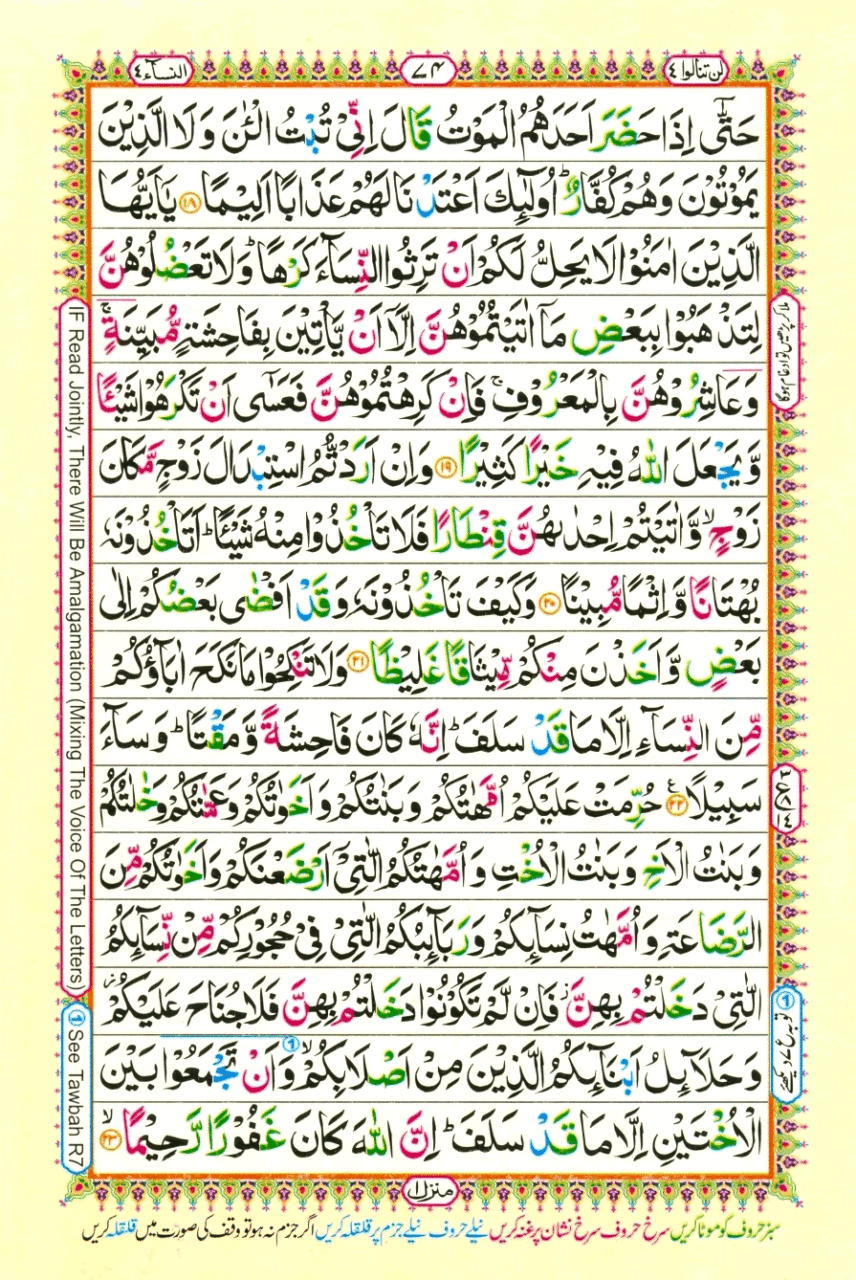 لن تنالوا ٤
٧٤
النسآء ٤
حَتّٰۤی اِذَا حَضَرَ اَحَدَهُمُ الْمَوْتُ قَالَ اِنِّیْ تُبْتُ الْـٰٔنَ وَ لَا الَّذِیْنَ
یَمُوْتُوْنَ وَ هُمْ كُفَّارٌ ؕ اُولٰٓىِٕكَ اَعْتَدْ نَا لَهُمْ عَذَابًا اَلِیْمًا ۝۱۸ یٰۤاَیُّهَا
الَّذِیْنَ اٰمَنُوْا لَا یَحِلُّ لَكُمْ اَنْ تَرِثُوا النِّسَآءَ كَرْهًا ؕ وَ لَا تَعْضُلُوْهُنَّ
لِتَذْهَبُوْا بِبَعْضِ مَاۤ اٰتَیْتُمُوْهُنَّ اِلَّاۤ اَنْ یَّاْتِیْنَ بِفَاحِشَةٍ مُّبَیِّنَةٍ ۚ
وَ عَاشِرُوْهُنَّ بِالْمَعْرُوْفِ ۚ فَاِنْ كَرِهْتُمُوْهُنَّ فَعَسٰۤی اَنْ تَكْرَهُوْا شَیْـًٔا
وَّ یَجْعَلَ اللّٰهُ فِیْهِ خَیْرًا كَثِیْرًا ۝۱۹ وَ اِنْ اَرَدْتُّمُ اسْتِبْدَالَ زَوْجٍ مَّكَانَ
زَوْجٍ ۙ وَّ اٰتَیْتُمْ اِحْدٰىهُنَّ قِنْطَارًا فَلَا تَاْخُذُوْا مِنْهُ شَیْـًٔا ؕ اَتَاْخُذُوْنَهٗ
بُهْتَانًا وَّ اِثْمًا مُّبِیْنًا ۝۲۰ وَ كَیْفَ تَاْخُذُوْنَهٗ وَ قَدْ اَفْضٰی بَعْضُكُمْ اِلٰی
بَعْضٍ وَّ اَخَذْنَ مِنْكُمْ مِّیْثَاقًا غَلِیْظًا ۝۲۱ وَ لَا تَنْكِحُوْا مَا نَكَحَ اٰبَآؤُكُمْ
مِّنَ النِّسَآءِ اِلَّا مَا قَدْ سَلَفَ ؕ اِنَّهٗ كَانَ فَاحِشَةً وَّ مَقْتًا ؕ وَ سَآءَ
سَبِیْلًا ۝۲۲ ع حُرِّمَتْ عَلَیْكُمْ اُمَّهٰتُكُمْ وَ بَنٰتُكُمْ وَ اَخَوٰتُكُمْ وَ عَمّٰتُكُمْ وَ خٰلٰتُكُمْ
وَ بَنٰتُ الْاَخِ وَ بَنٰتُ الْاُخْتِ وَ اُمَّهٰتُكُمُ الّٰتِیْۤ اَرْضَعْنَكُمْ وَ اَخَوٰتُكُمْ مِّنَ
الرَّضَاعَةِ وَ اُمَّهٰتُ نِسَآىِٕكُمْ وَ رَبَآىِٕبُكُمُ الّٰتِیْ فِیْ حُجُوْرِكُمْ مِّنْ نِّسَآىِٕكُمُ
الّٰتِیْ دَخَلْتُمْ بِهِنَّ ؗ فَاِنْ لَّمْ تَكُوْنُوْا دَخَلْتُمْ بِهِنَّ فَلَا جُنَاحَ عَلَیْكُمْ ؗ
وَ حَلَآىِٕلُ اَبْنَآىِٕكُمُ الَّذِیْنَ مِنْ اَصْلَابِكُمْ ۙ وَ اَنْ تَجْمَعُوْا بَیْنَ
الْاُخْتَیْنِ اِلَّا مَا قَدْ سَلَفَ ؕ اِنَّ اللّٰهَ كَانَ غَفُوْرًا رَّحِیْمًا ۝۲۳ ۙ
IF Read Jointly, There Will Be Amalgamation (Mixing The Voice Of The Letters)
See Tawbah R7
منزل ١
سبز حروف کو موٹا کریں سرخ حروف سرخ نشان پر غنہ کریں نیلے حروف نیلے جزم پر قلقلہ کریں اگر جزم نہ ہو تو وقف کی صورت میں قلقلہ کریں